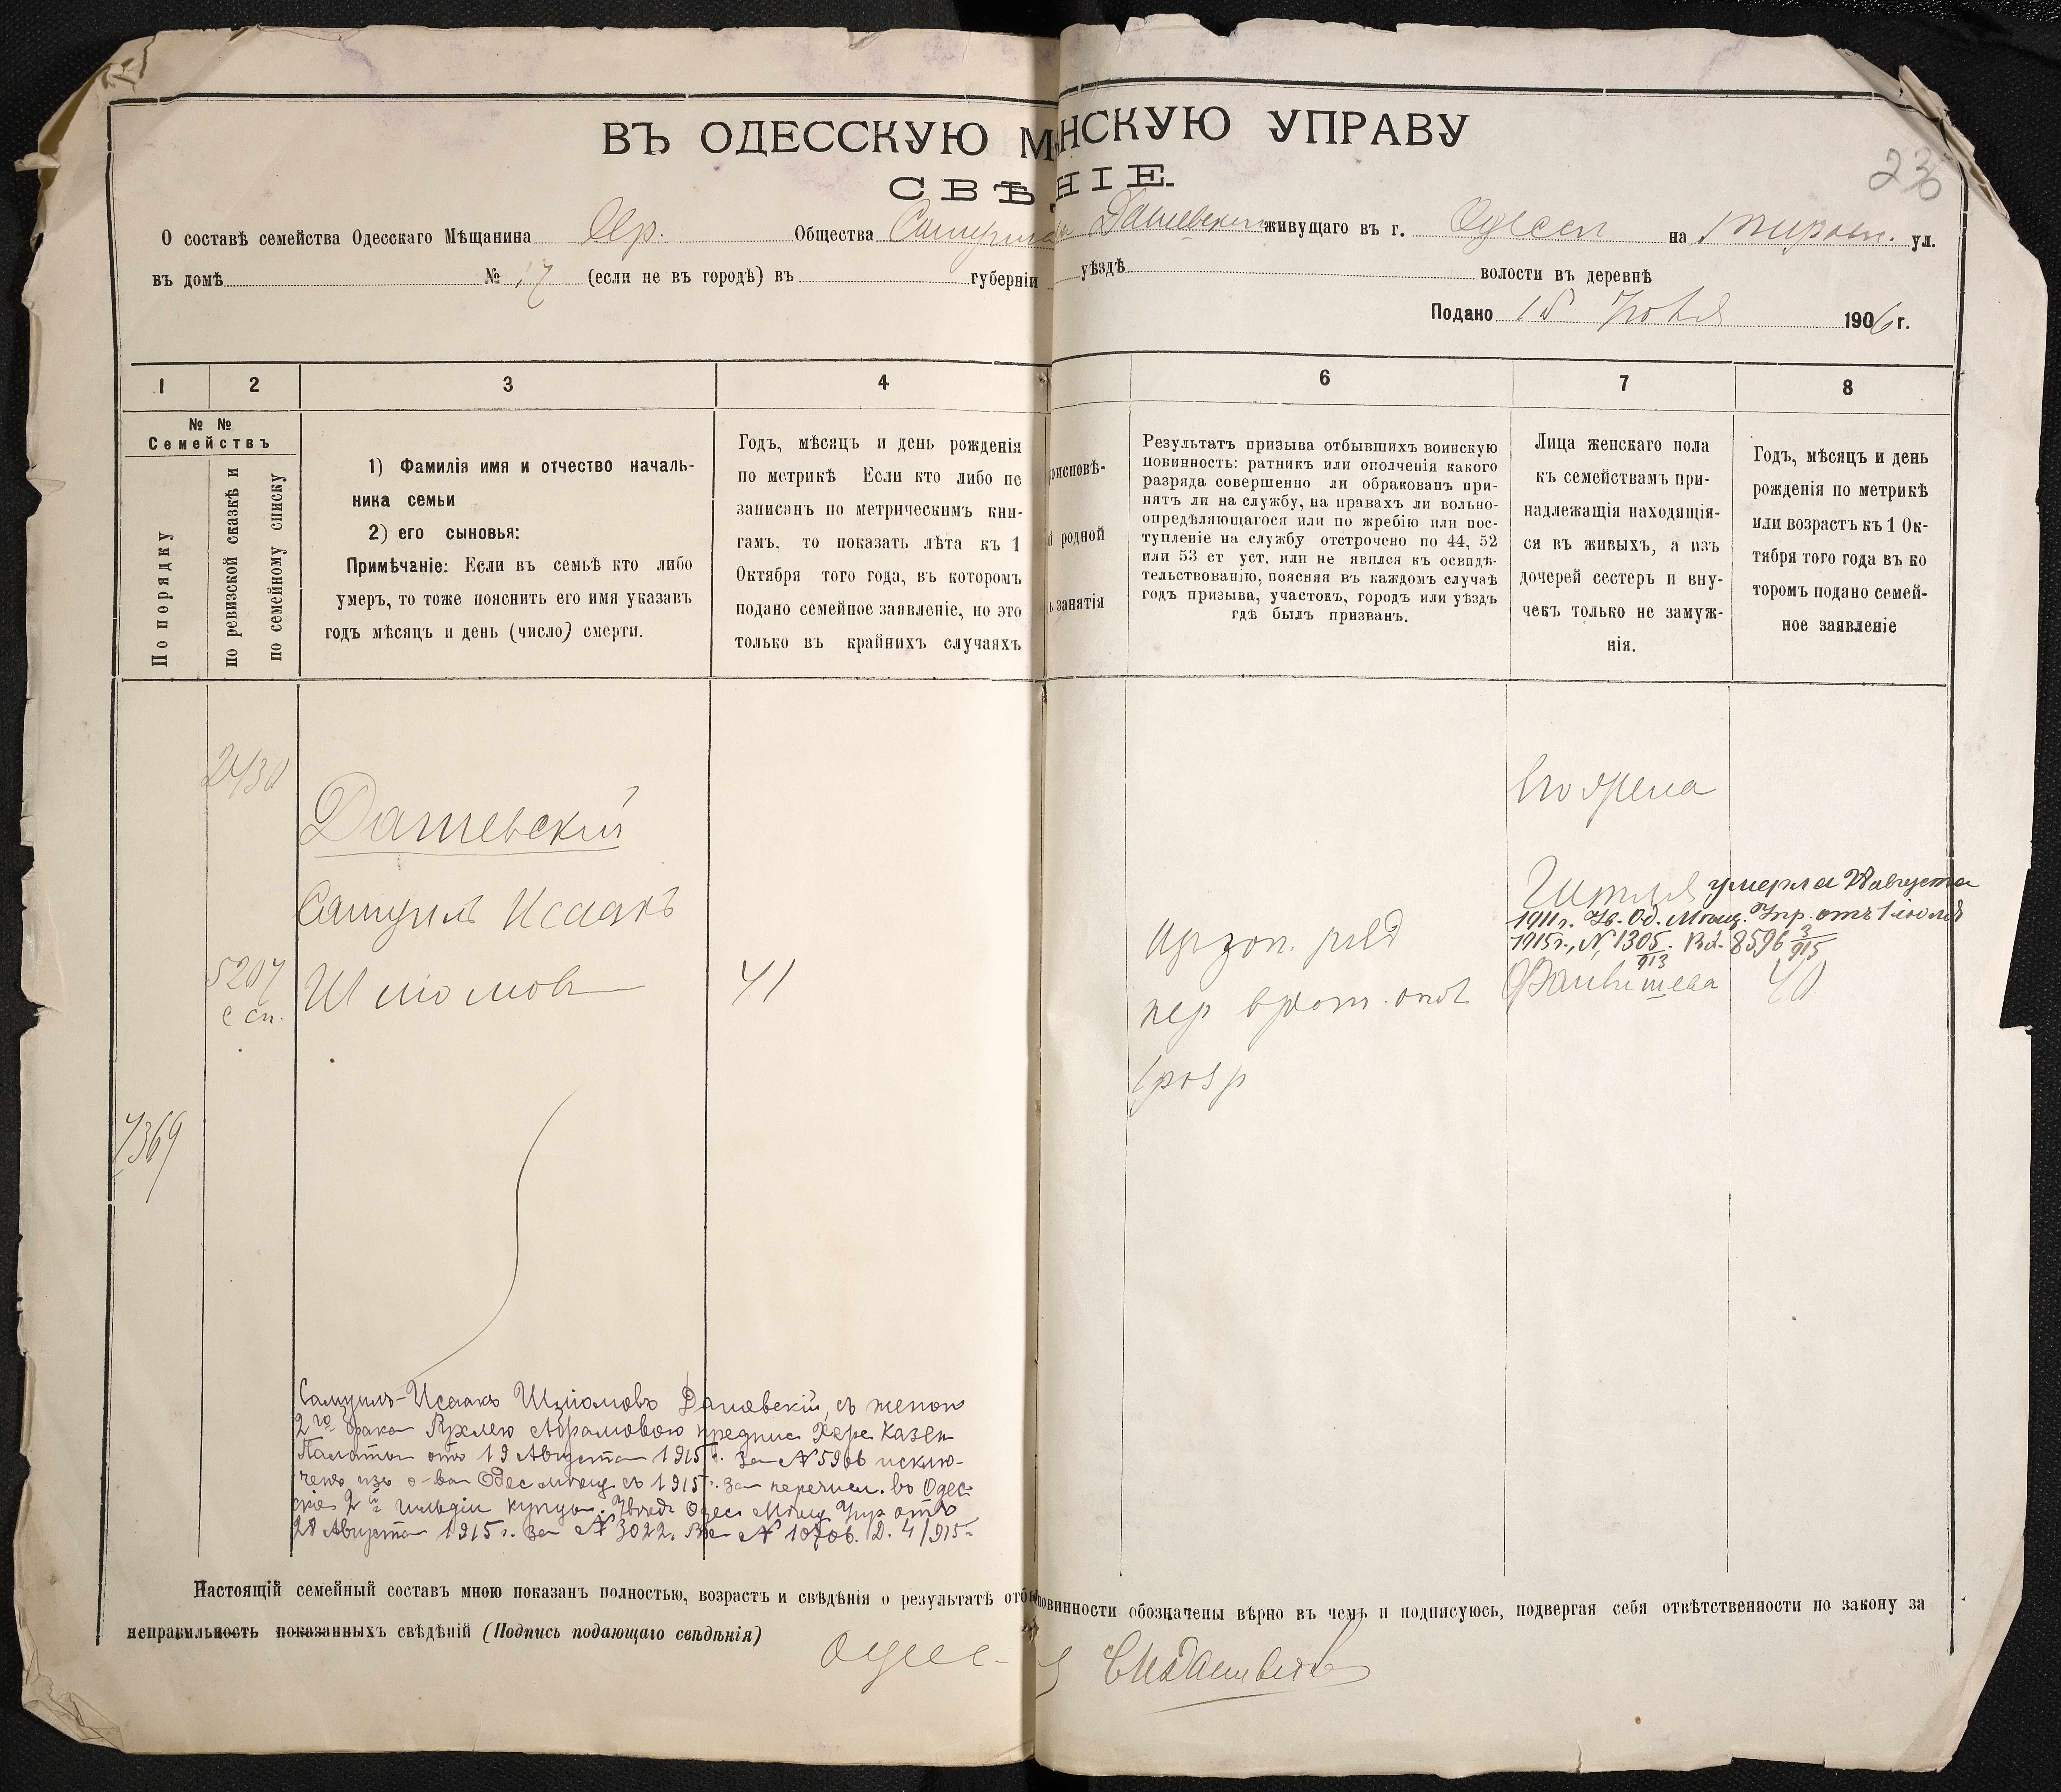 ВЪ ОДЕССКУЮ М НСКУЮ УПРАВУ
СВѢ НІЕ.
23
О составѣ семейства Одесскаго Мѣщанина Евр. Общества Самуила Дашевскаго живущаго въ г. Одессѣ на ул.
въ домѣ № 17 (если не въ городѣ) въ губерніи уѣздѣ волости въ деревнѣ
Подано 15 1906 г.
1 2 3 4 6 7 8
№ №
Семействъ
По порядку
по ревизской сказкѣ и
по семейному списку
1) Фамилія имя и отчество началь-
ника семьи
2) его сыновья:
Примѣчаніе: Если въ семьѣ кто либо
умеръ, то тоже пояснить его имя указавъ
годъ мѣсяцъ и день (число) смерти.
Годъ, мѣсяцъ и день рожденія
по метрикѣ Если кто либо не
записанъ по метрическимъ кни-
гамъ, то показать лѣта къ 1
Октября того года, въ которомъ
подано семейное заявленіе, но это
только въ крайнихъ случаяхъ
оисповѣ-
родной
занятія
Результатъ призыва отбывшихъ воинскую
повинность: ратникъ или ополченія какого
разряда совершенно ли обракованъ при-
нятъ ли на службу, на правахъ ли вольно-
опредѣляющагося или по жребію или пос-
тупленіе на службу отсрочено по 44, 52
или 53 ст уст. или не явился къ освидѣ-
тельствованію, поясняя въ каждомъ случаѣ
годъ призыва, участокъ, городъ или уѣздъ
гдѣ былъ призванъ.
Лица женскаго пола
къ семействамъ при-
надлежащія находящія-
ся въ живыхъ, а изъ
дочерей сестеръ и вну-
чекъ только не замуж-
нія.
Годъ, мѣсяцъ и день
рожденія по метрикѣ
или возрастъ къ 1 Ок-
тября того года въ ко
торомъ подано семей-
ное заявленіе
2430
Дашевскій
Самуилъ Исаакъ
5207
с сп.
Шліомовъ
41
7369
1 разр
Его жена
Гитля умерла 28 августа
1911 г. Ув. Од. Мѣщ. Упр. отъ 1 іюля
1915 г., № 1305/913. Вх. 8596 3/915
40
Самуилъ-Исаакъ Шліомовъ Дашевскій, съ женою
2го брака Рухлею Абрамовою предпис Херс Казен
Палаты отъ 19 Августа 1915 г. за № 5966 исклю-
ченъ изъ о-ва Одес мѣщ съ 1915 г. за перечисл. въ Одес-
скіе 2й гильдіи купцы. Увѣд Одес Мѣщ Упр отъ
28 Августа 1915 г. за № 3022. Вх № 10706. Д. 4/915 г.
Настоящій семейный составъ мною показанъ полностью, возрастъ и свѣдѣнія о результатѣ отбы повинности обозначены вѣрно въ чемъ и подписуюсь, подвергая себя отвѣтственности по закону за
неправильность показанныхъ свѣдѣній (Подпись подающаго свѣдѣнія)